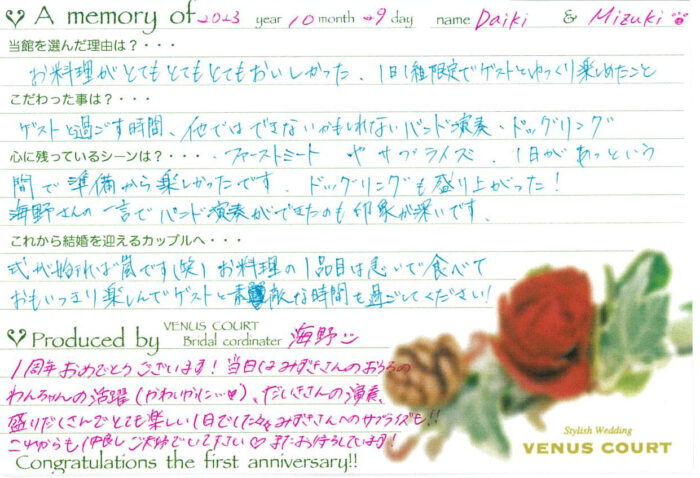 A memory of 2023 year 10 month 29 day name Daiki & Mizuki
当館を選んだ理由は？・・・
お料理がとてもとてもとてもおいしかった、1日1組限定でゲストとゆっくり楽しめたこと
こだわった事は？・・・
ゲストと過ごす時間、他ではできないかもしれないバンド演奏・ドッグリング
心に残っているシーンは？・・・ファーストミートやサプライズ、1日があっという
間で準備から楽しかったです、ドッグリングも盛り上がった！
海野さんの一言でバンド演奏ができたのも印象が深いです、
これから結婚を迎えるカップルへ・・・
式が始れば嵐です(笑)お料理の1品目は急いで食べて
おもいっきり楽しんでゲストと素敵な時間も過ごしてください!
Produced by VENUS COURT Bridal cordinater 海野
1周年おめでとうございます！当日はみずきさんのおうちの
わんちゃんの活躍(かわいかれに…♥)、だいきさんの演奏、
盛りだくさんでとても楽しい1日でした♪みずきさんへのサプライズも!!
これからも仲良しご夫婦でいて下さい♡またお待ちしています!
Congratulations the first anniversary!!
Stylish Wedding
VENUS COURT